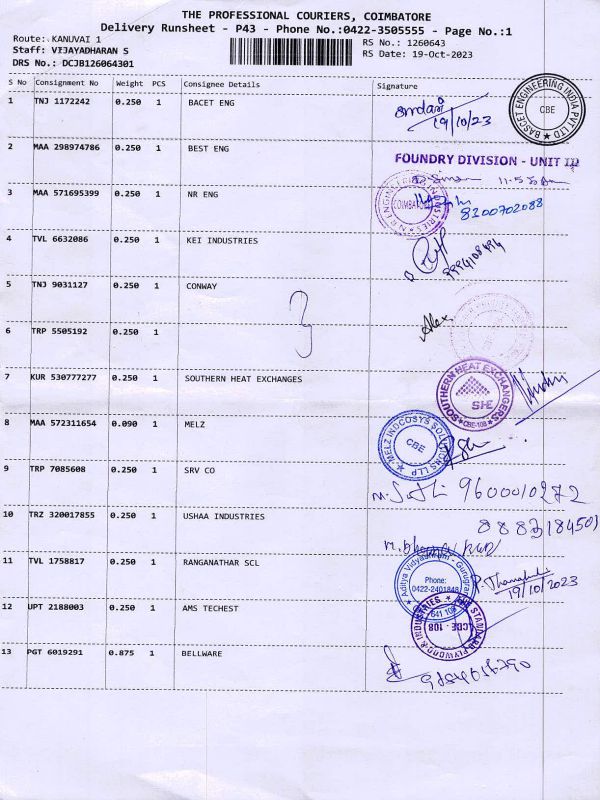 THE PROFESSIONAL COURIERS, COIMBATORE
Delivery Runsheet - P43 - Phone No.:0422-3505555 - Page No.:1
Route: KANUVAI 1
RS No.: 1260643
Staff: VIJAYADHARAN S
RS Date: 19-Oct-2023
DRS No.: DCJB126064301
S No Consignment No Weight PCS Consignee Details Signature
1 TNJ 1172242 0.250 1 BACET ENG
19/10/23
BASCET ENGINEERING INDIA PVT LTD CBE
2 MAA 298974786 0.250 1 BEST ENG
FOUNDRY DIVISION - UNIT III
3 MAA 571695399 0.250 1 NR ENG
N.R ENGINEERING INDUSTRIES COIMBATORE
8200702088
4 TVL 6632086 0.250 1 KEI INDUSTRIES
5 TNJ 9031127 0.250 1 CONWAY
Alex
6 TRP 5505192 0.250 1
7 KUR 530777277 0.250 1 SOUTHERN HEAT EXCHANGES
SOUTHERN HEAT EXCHANGERS SHE CBE-108
8 MAA 572311654 0.090 1 MELZ
MELZ INDCOSYS SOLUTIONS LLP CBE
9 TRP 7085608 0.250 1 SRV CO
9600010272
10 TRZ 320017855 0.250 1 USHAA INDUSTRIES
11 TVL 1758817 0.250 1 RANGANATHAR SCL
Aditya Vidyashram - Gurugram Phone: 0422-2401848 641 108
19/10/2023
12 UPT 2188003 0.250 1 AMS TECHEST
THE STANDARD PLYWOOD INDUSTRIES CBE 108
13 PGT 6019291 0.875 1 BELLWARE